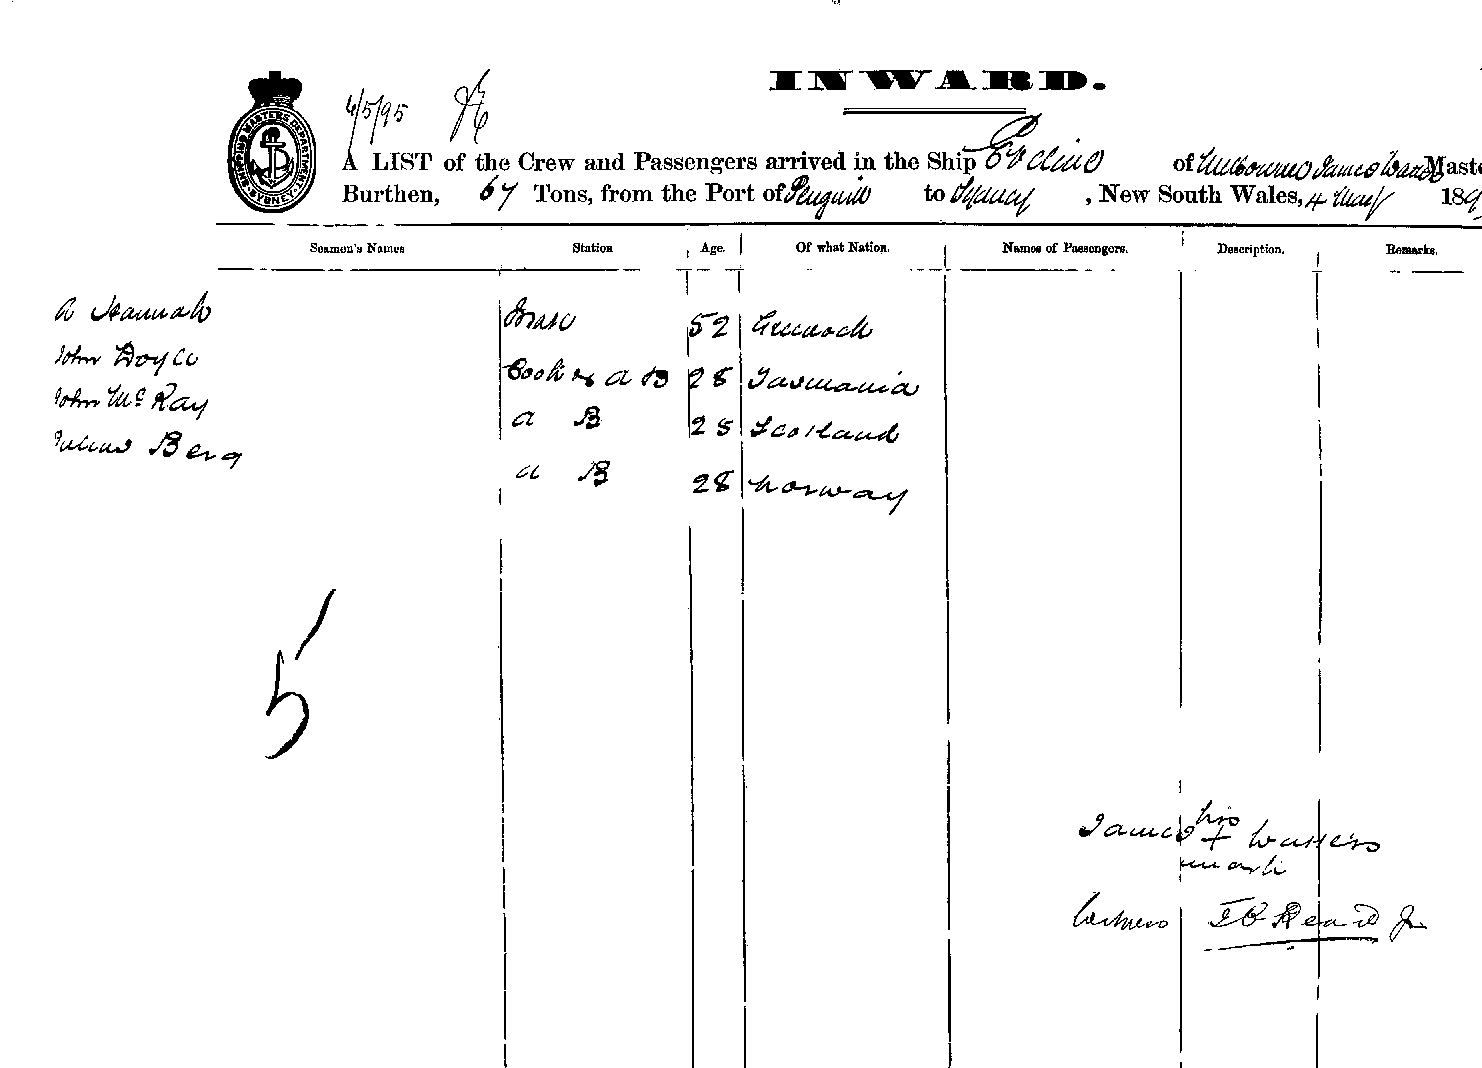 INWARD.
4/5/95
SHIPPING MASTERS DEPARTMENT SYDNEY
A LIST of the Crew and Passengers arrived in the Ship of Melbourne James Maste
Burthen, 67 Tons, from the Port of Penguin to Sydney, New South Wales, 4 May 189
Seamen's Names Station Age. Of what Nation. Names of Passengers. Description. Remarks.
A Hannah Mate 52 Greenock
John Doyle Cook & A B 28 Tasmania
John McRay A B 28 Scotland
Julius Berg A B 28 Norway
5
his
James + Watters
mark
Witness Heard Jr